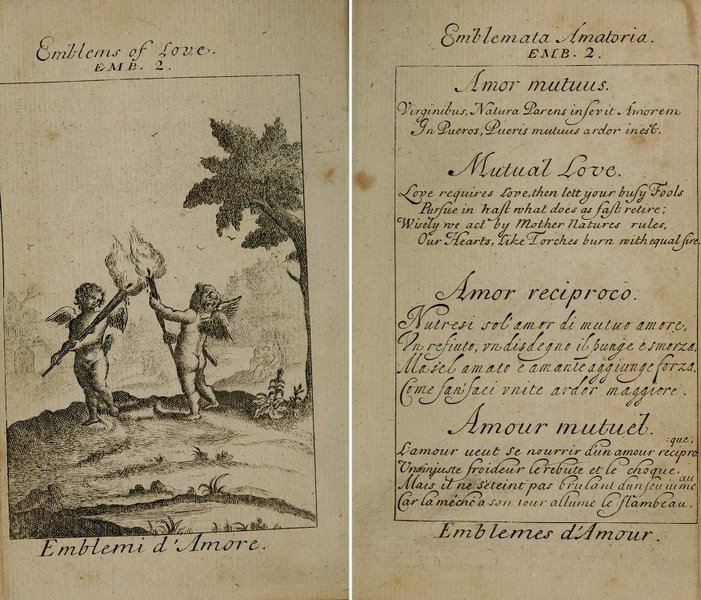 Emblems of Love.
EMB. 2.
Emblemi d'Amore.
Emblemata Amatoria.
EMB. 2.
Amor mutuus.
Virginibus, Natura Parens inserit Amorem
In Pueros, Pueris mutuus ardor inest.
Mutual Love.
Love requires Love, then lett your busy Fools
Pursue in hast what does as fast retire;
Wisely we act by Mother Natures rules,
Our Hearts, like Torches burn with equal fire.
Amor reciproco.
Nutresi sol' amor di mutuo amore,
Un refiuto, vn disdegno il punge e smorza,
Ma sel amato e amante aggiunge forza,
Come fan faci vnite ardor maggiere.
Amour mutuel.
L'amour veut se nourrir d'un amour recipro
:que;
Une injuste froideur le rebute et le choque.
Mais il ne s'eteint pas brulant d'un feu
au
Car la méche a son tour allume le flambeau.
Emblemes d'Amour.